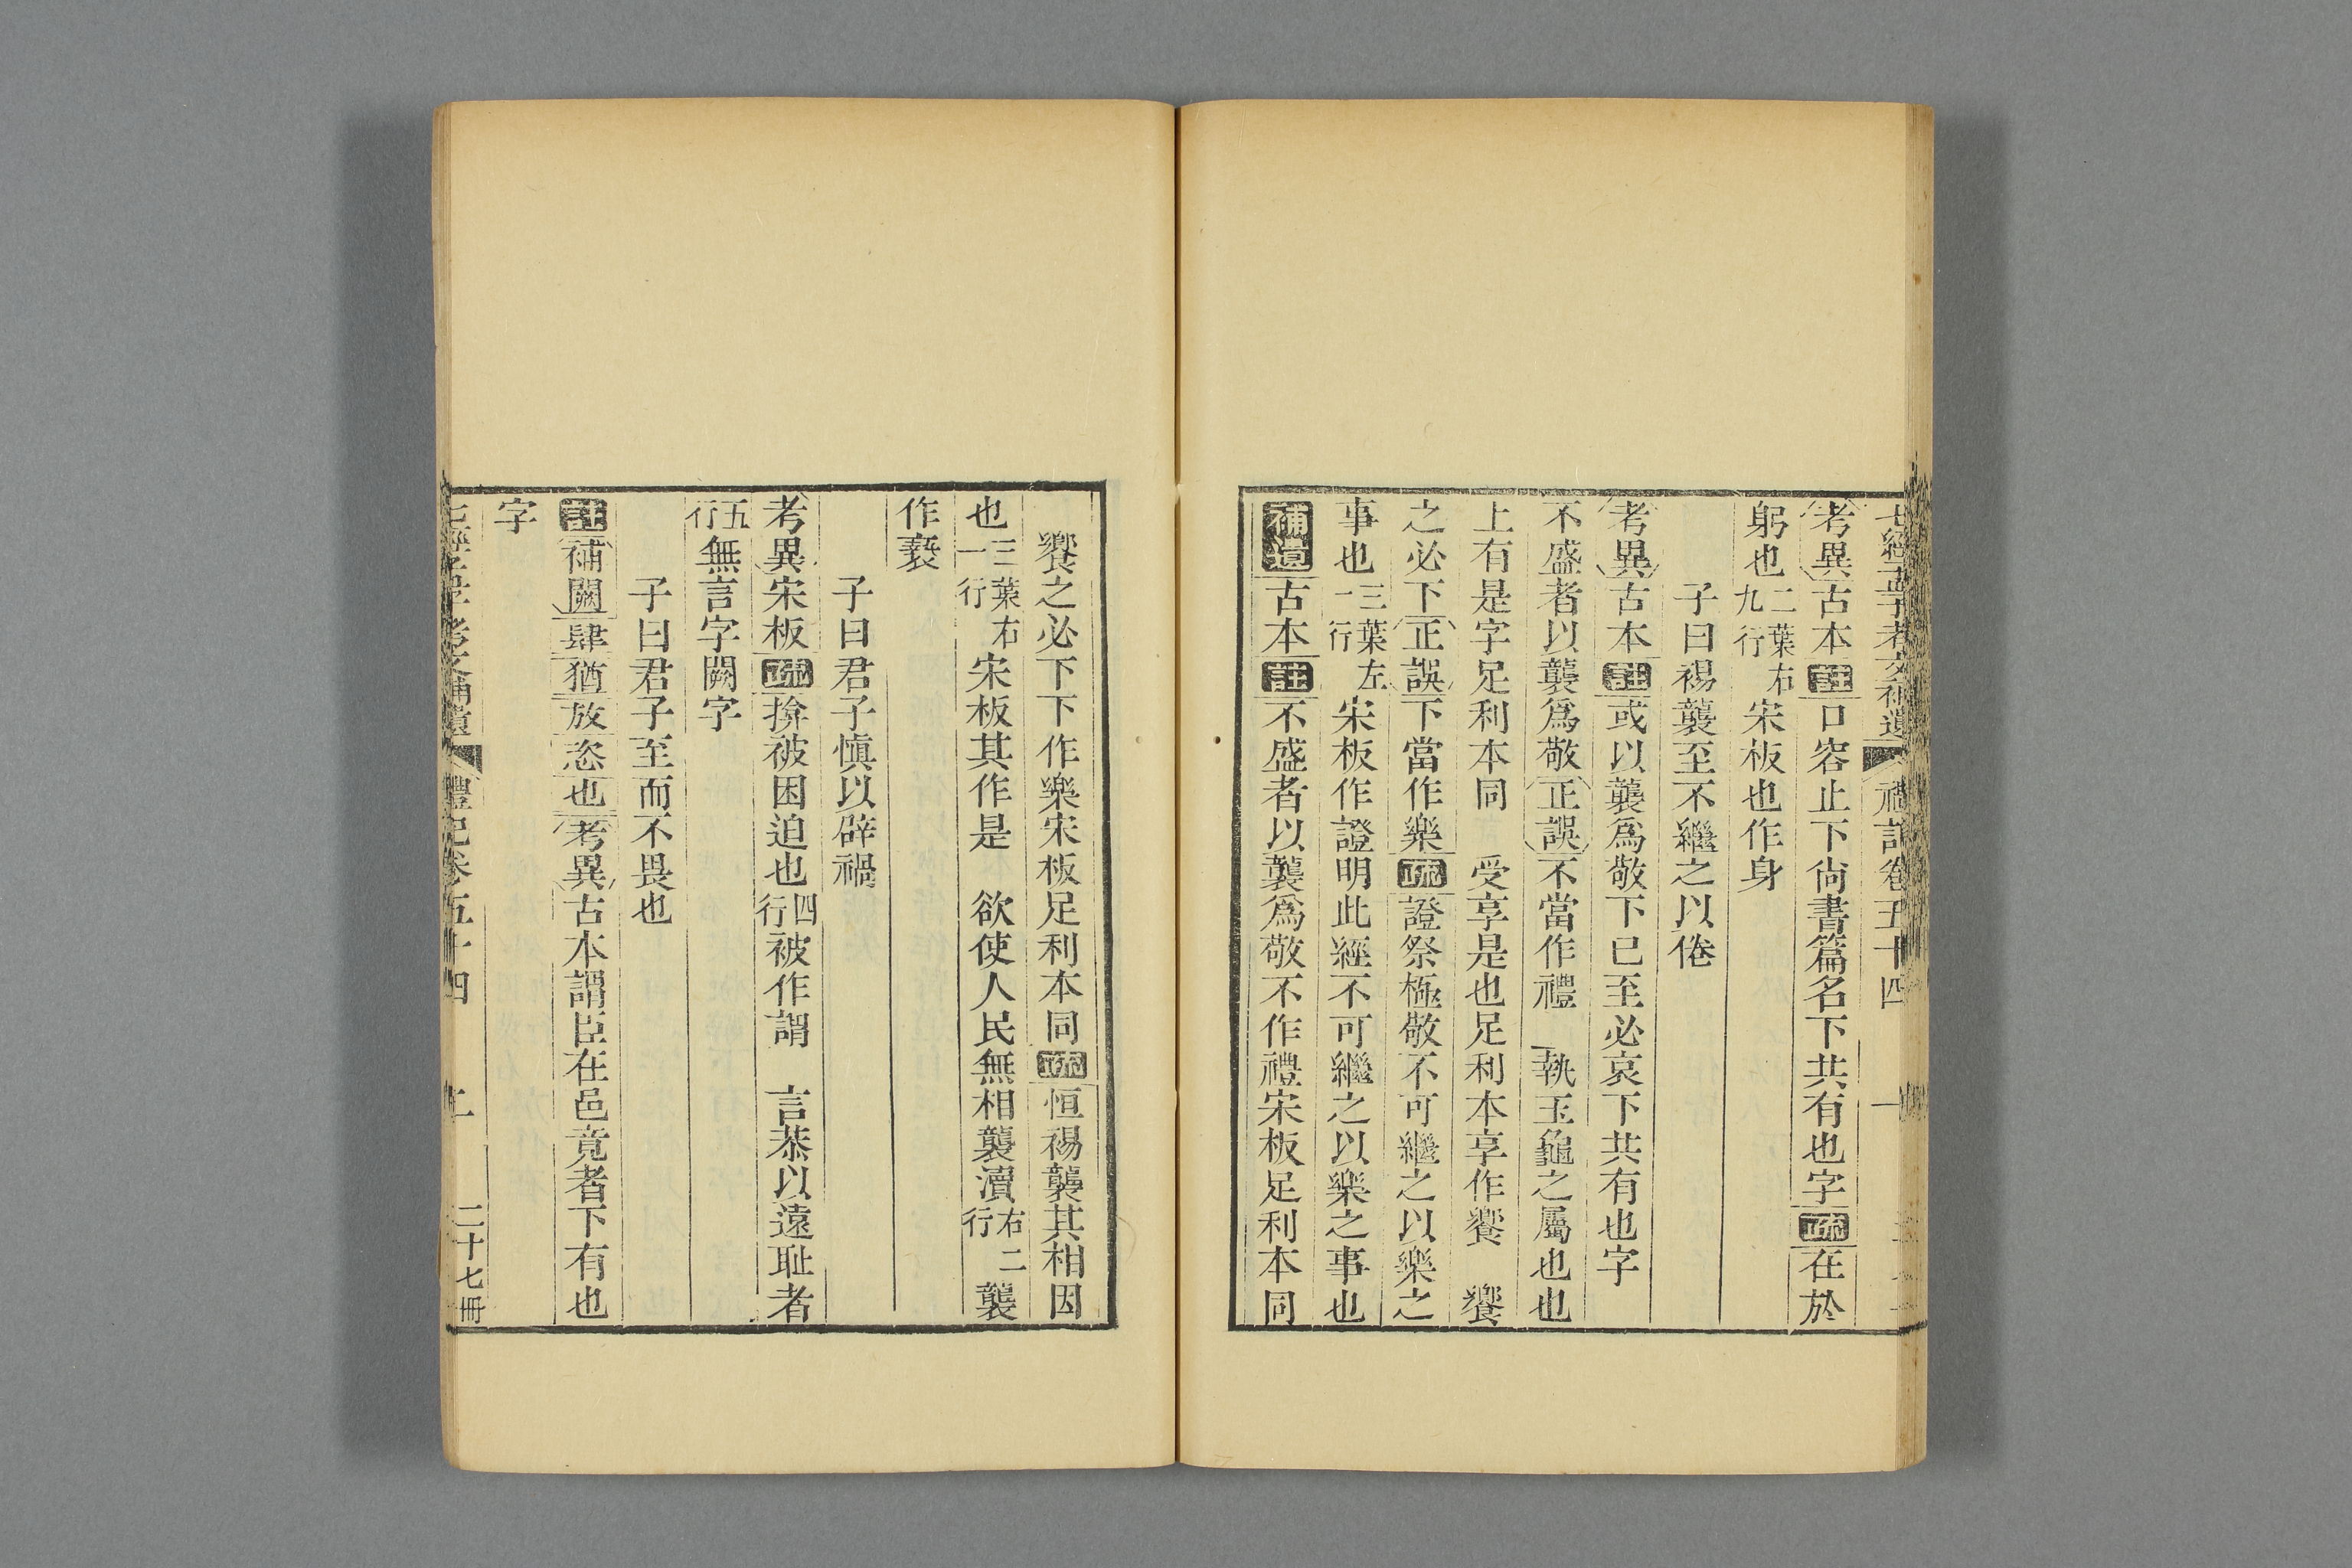 七經孟子考文補遺 禮記卷五十四 一
考異古本註口容止下尙書篇名下共有也字疏在於
躬也二葉右九行宋板也作身
子曰裼襲至不繼之以倦
考異古本註或以襲爲敬下已至必哀下共有也字
不盛者以襲爲敬正誤不當作禮 執玉龜之屬也也
上有是字足利本同 受享是也足利本享作饗 饗
之必下正誤下當作樂疏證祭極敬不可繼之以樂之
事也三葉左一行宋板作證明此經不可繼之以樂之事也
補遺古本註不盛者以襲爲敬不作禮宋板足利本同
饗之必下下作樂宋板足利本同疏恒裼襲其相因
也三葉右一行宋板其作是 欲使人民無相襲瀆右二行襲
作褻
子曰君子愼以辟禍
考異宋板疏揜被困迫也四行被作謂 言恭以遠耻者
五行無言字闕字
子曰君子至而不畏也
註補闕肆猶放恣也考異古本謂臣在邑竟者下有也
字
七經孟子考文補遺 禮記卷五十四 二 二十七冊